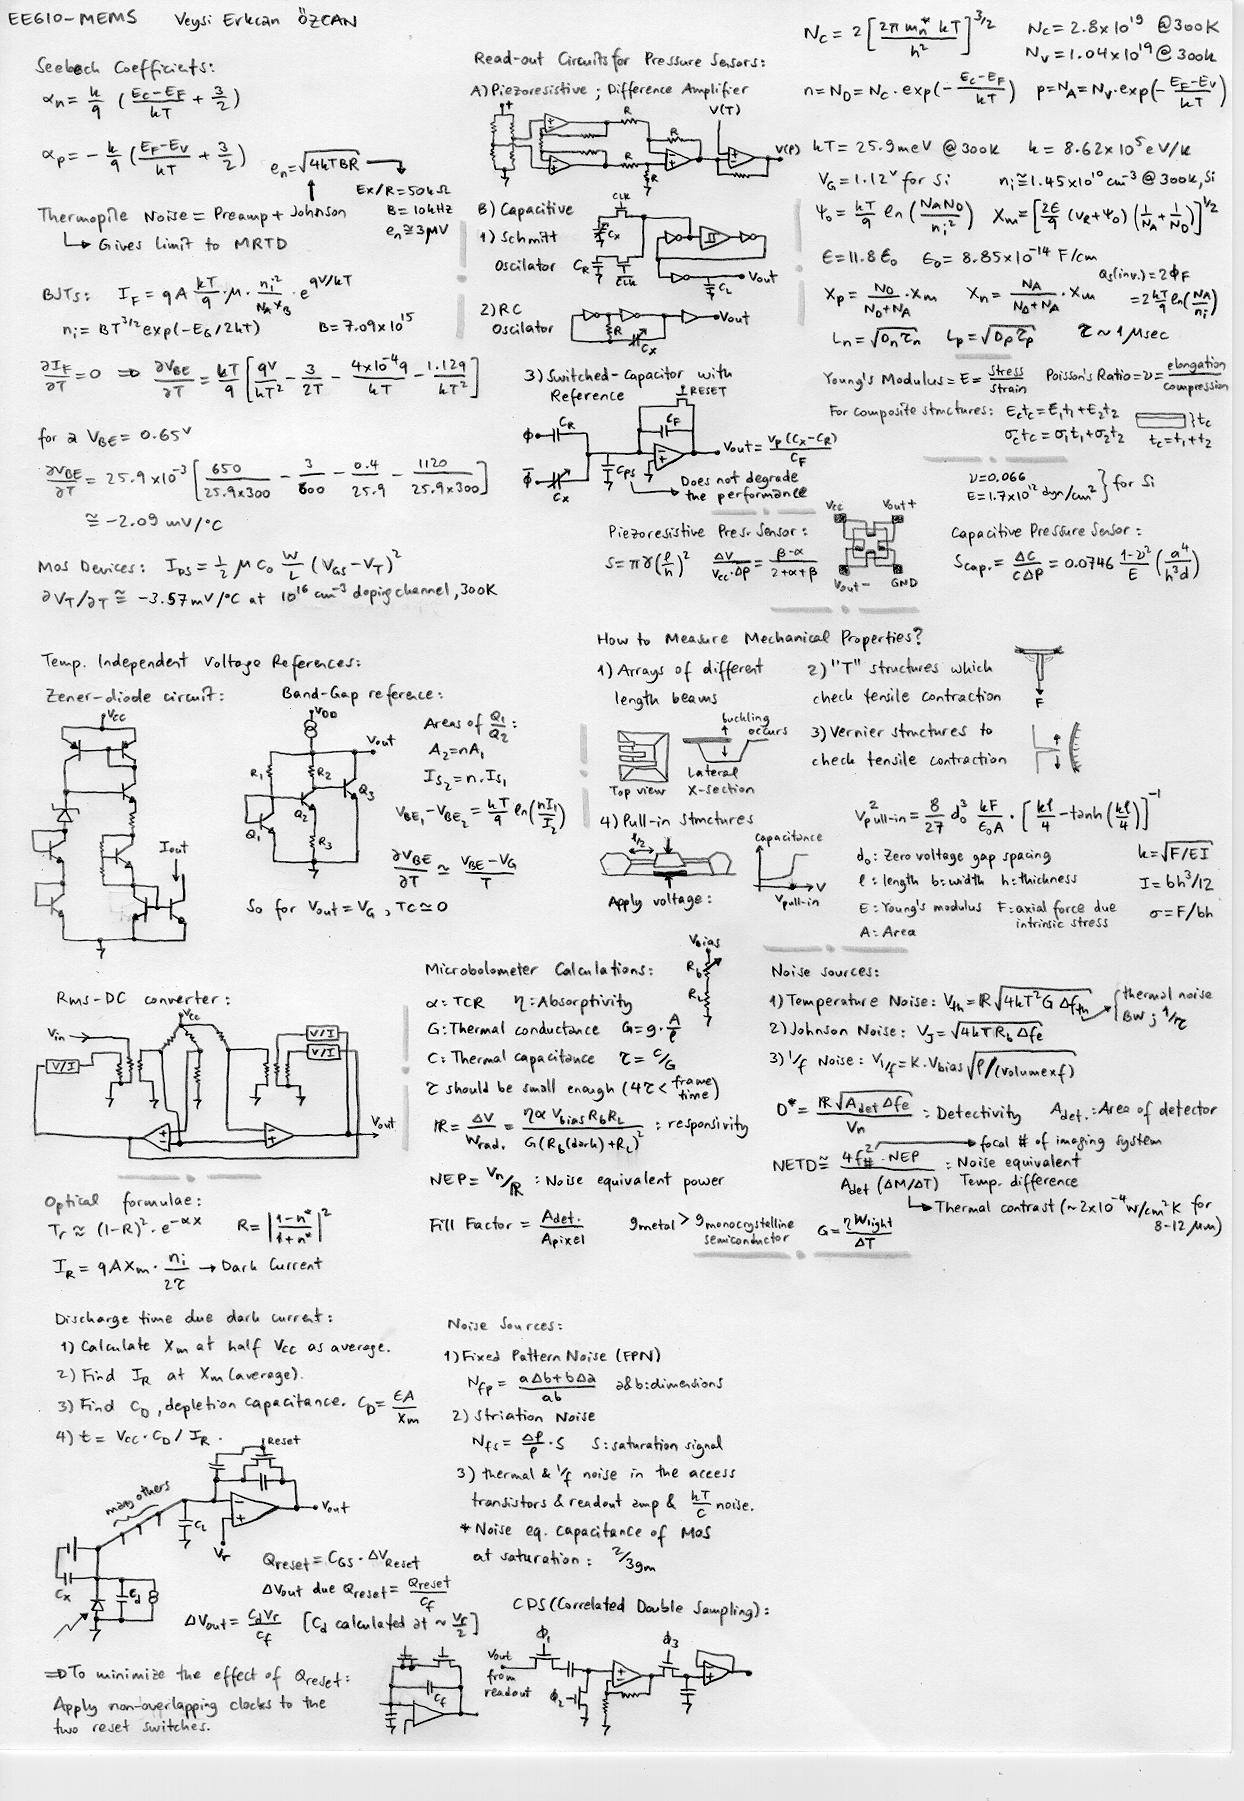 EE610-MEMS Veysi Erkcan ÖZCAN
Seebeck Coefficients:
αn = k/q (Ec-EF/kT + 3/2)
αp = - k/q (EF-EV/kT + 3/2)
en = √4kTBR
Ex/R = 50kΩ
B = 10kHz
en ≅ 3μV
Thermopile Noise = Preamp + Johnson
↳ Gives limit to MRTD
BJTs: IF = qA kT/q · μ · ni²/NA XB · e^qV/kT
ni = BT^3/2 exp(-EG/2kT) B = 7.09x10^15
∂IF/∂T = 0 ⇒ ∂VBE/∂T = kT/q [qV/kT² - 3/2T - 4x10^-4 q/kT - 1.12q/kT²]
for a VBE = 0.65V
∂VBE/∂T = 25.9x10^-3 [650/25.9x300 - 3/600 - 0.4/25.9 - 1120/25.9x300]
≅ -2.09 mV/°C
MOS Devices: IDS = 1/2 μ C0 W/L (VGS-VT)²
∂VT/∂T ≅ -3.57mV/°C at 10^16 cm^-3 doping channel, 300K
Temp. Independent Voltage References:
Zener-diode circuit: Band-Gap reference:
Vcc
Iout
VDD
Vout
R1 R2 Q3
Q2
Q1 R3
Areas of Q1/Q2:
A2 = nA1
Is2 = n.Is1
VBE1 - VBE2 = kT/q ln(nI1/I2)
∂VBE/∂T ≃ VBE-VG/T
So for Vout = VG, TC ≃ 0
Rms-DC converter:
Vcc
Vin
V/I
V/I
V/I
Vout
Optical formulae:
Tr ≈ (1-R)² · e^-αx R = |1-n*/1+n*|²
IR = qAXm · ni/2τ → Dark Current
Discharge time due dark current:
1) Calculate Xm at half Vcc as average.
2) Find IR at Xm (average).
3) Find CD, depletion capacitance. CD = εA/Xm
4) t = Vcc · CD / IR.
Reset
many others
CL
Vout
Vr
Cx
Cd
Qreset = CGS · ΔVReset
ΔVout due Qreset = Qreset/Cf
ΔVout = Cd Vr/Cf [Cd calculated at ~ Vr/2]
⇒ To minimize the effect of Qreset:
Apply non-overlapping clocks to the
two reset switches.
Cf
Read-out Circuits for Pressure Sensors:
A) Piezoresistive ; Difference Amplifier
V(T)
R
R
R
R
V(P)
B) Capacitive
1) Schmitt
Oscilator
CLK
Cx
CR
CLK
CL
Vout
2) RC
Oscilator
R
Cx
Vout
3) Switched-Capacitor with
Reference
RESET
CR
CF
ϕ
Cps
Vout = Vp(Cx-CR)/CF
ϕ̅
Cx
Does not degrade
the performance
Piezoresistive Pres. Sensor:
S = πγ(ℓ/h)² ΔV/Vcc·Δp = β-α/2+α+β
Vcc Vout+
Vout- GND
Capacitive Pressure Sensor:
Scap. = ΔC/CΔP = 0.0746 1-ν²/E (a⁴/h³d)
Nc = 2 [2π mn* kT/h²]^3/2
Nc = 2.8x10^19 @300K
Nv = 1.04x10^19 @300K
n = ND = Nc · exp(- Ec-EF/kT) p = NA = Nv · exp(- EF-EV/kT)
kT = 25.9meV @300K k = 8.62x10^5 eV/K
VG = 1.12V for Si ni ≅ 1.45x10^10 cm^-3 @300K, Si
Ψ0 = kT/q ln(NAND/ni²) Xm = [2ε/q (VR+Ψ0) (1/NA + 1/ND)]^1/2
ε = 11.8ε0 ε0 = 8.85x10^-14 F/cm
Xp = ND/ND+NA · Xm Xn = NA/ND+NA · Xm
Qs(inv.) = 2ΦF
= 2 kT/q ln(NA/ni)
Ln = √Dnτn Lp = √Dpτp τ ~ 1μsec
Young's Modulus = E = stress/strain Poisson's Ratio = ν = elongation/compression
For composite structures: Ectc = E1t1 + E2t2
σctc = σ1t1 + σ2t2
tc
tc = t1+t2
ν = 0.066
E = 1.7x10^12 dyn/cm² } for Si
How to Measure Mechanical Properties?
1) Arrays of different
length beams
buckling
occurs
Top view
Lateral
X-section
2) "T" structures which
check tensile contraction
F
3) Vernier structures to
check tensile contraction
4) Pull-in structures
l/2
Apply voltage:
Capacitance
V
Vpull-in
V²pull-in = 8/27 d0³ kF/ε0A · [kℓ/4 - tanh(kℓ/4)]^-1
d0: Zero voltage gap spacing k = √F/EI
ℓ: length b: width h: thickness I = bh³/12
E: Young's modulus F: axial force due
intrinsic stress σ = F/bh
A: Area
Microbolometer Calculations:
Vbias
Rb
RL
α: TCR η: Absorptivity
G: Thermal conductance G = g · A/ℓ
C: Thermal capacitance τ = C/G
τ should be small enough (4τ < frame time)
ℝ = ΔV/Wrad. = ηα Vbias Rb RL/G(Rb(dark)+RL)² : responsivity
NEP = Vn/ℝ : Noise equivalent power
Fill Factor = Adet./Apixel gmetal > gmonocrystalline semiconductor G = ηWlight/ΔT
Noise sources:
1) Temperature Noise: Vth = ℝ√4kT²GΔfth
{thermal noise
BW; 1/4τ
2) Johnson Noise: VJ = √4kTRbΔfe
3) 1/f Noise: V1/f = K·Vbias √ρ/(volumexf)
D* = ℝ√AdetΔfe/Vn : Detectivity Adet.: Area of detector
→ focal # of imaging system
NETD ≅ 4f#² · NEP/Adet (ΔM/ΔT) : Noise equivalent
Temp. difference
↳ Thermal contrast (~2x10^-4 W/cm²K for
8-12 μm)
Noise Sources:
1) Fixed Pattern Noise (FPN)
Nfp = aΔb+bΔa/ab a&b: dimensions
2) Striation Noise
Nfs = Δρ/ρ · S S: saturation signal
3) thermal & 1/f noise in the access
transistors & readout amp & kT/C noise.
* Noise eq. capacitance of MOS
at saturation: 2/3gm
CDS (Correlated Double Sampling):
Vout
from
readout
ϕ1
ϕ2
ϕ3